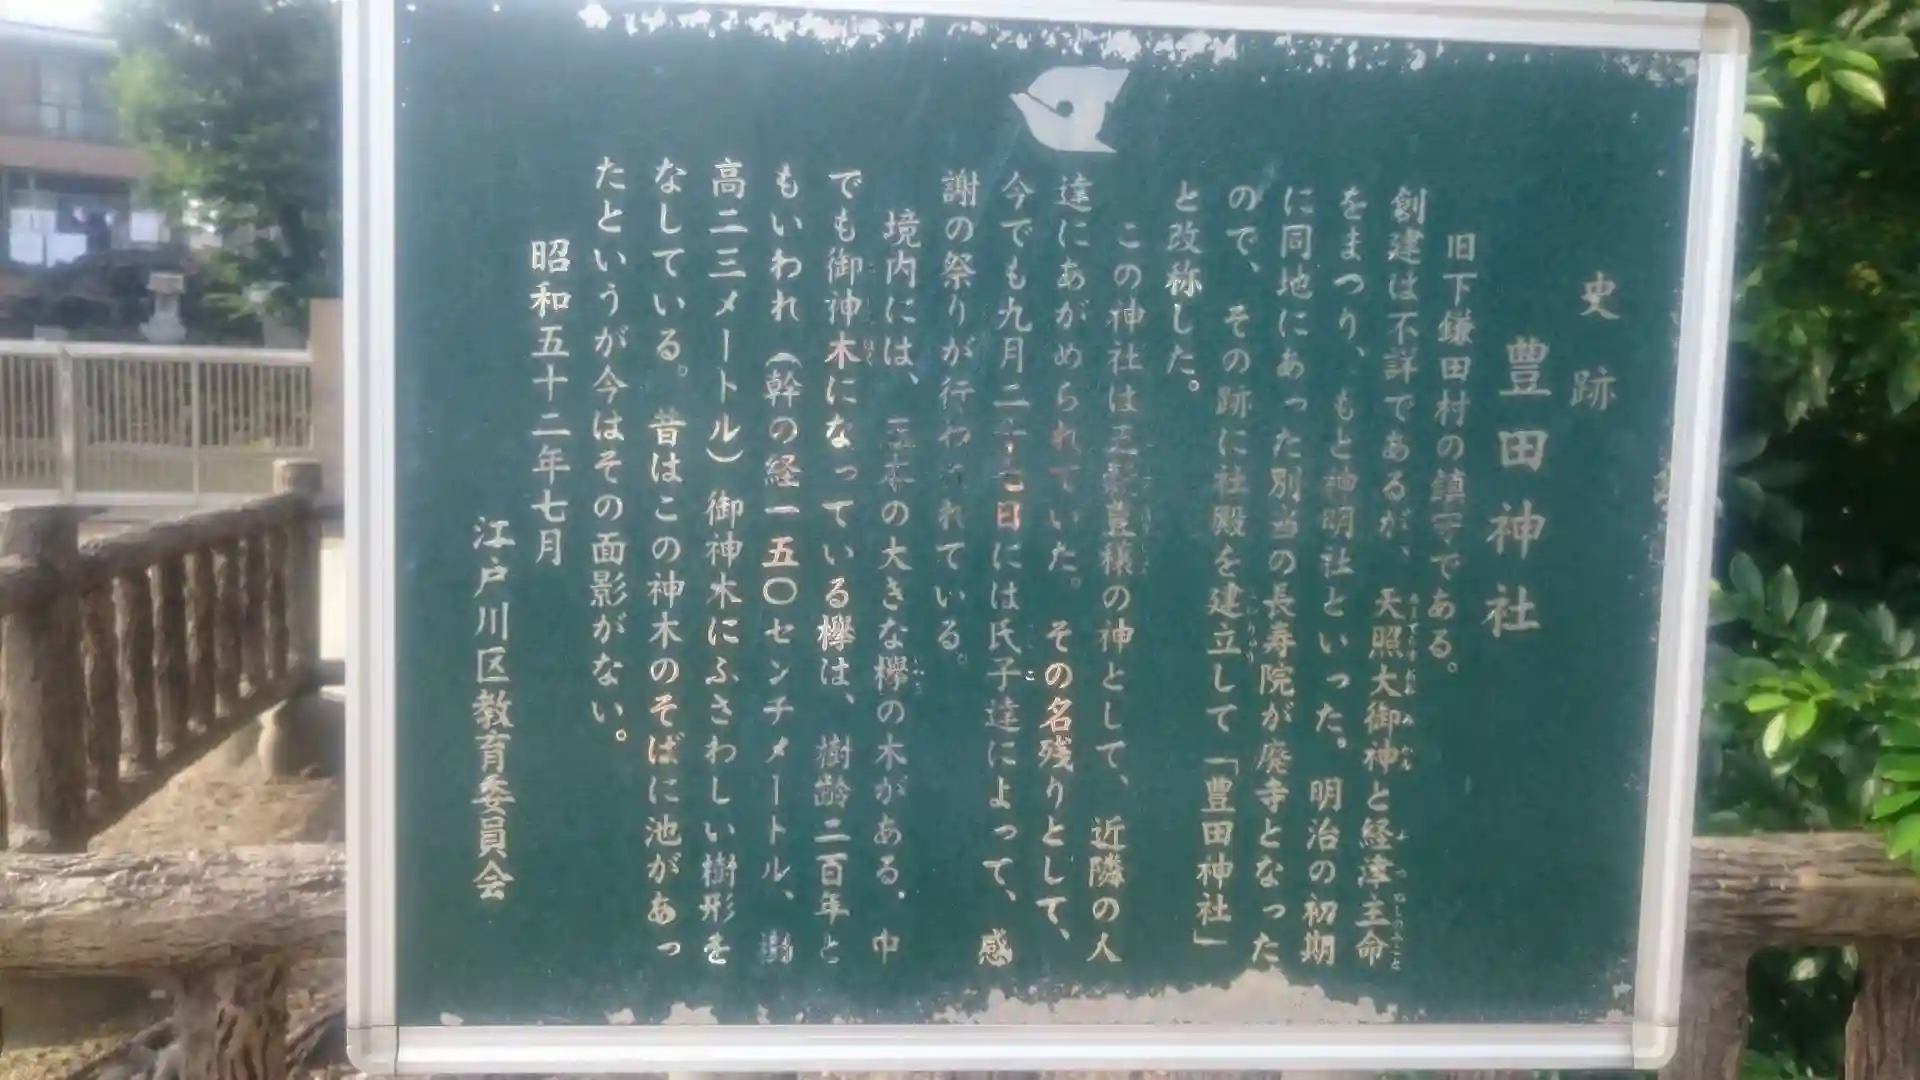 史跡
豊田神社
旧下鎌田村の鎮守である。
創建は不詳であるが、天照大御神と経津主命
をまつり、もと神明社といった。明治の初期
に同地にあった別当の長寿院が廃寺となった
ので、その跡に社殿を建立して「豊田神社」
と改称した。
この神社は五穀豊穣の神として、近隣の人
達にあがめられていた。その名残りとして、
今でも九月二十七日には氏子達によって、感
謝の祭りが行われている。
境内には、本の大きな欅の木がある。中
でも御神木になっている欅は、樹齢二百年と
もいわれ（幹の経一五〇センチメートル、樹
高二三メートル）御神木にふさわしい樹形を
なしている。昔はこの神木のそばに池があっ
たというが今はその面影がない。
昭和五十二年七月
江戸川区教育委員会